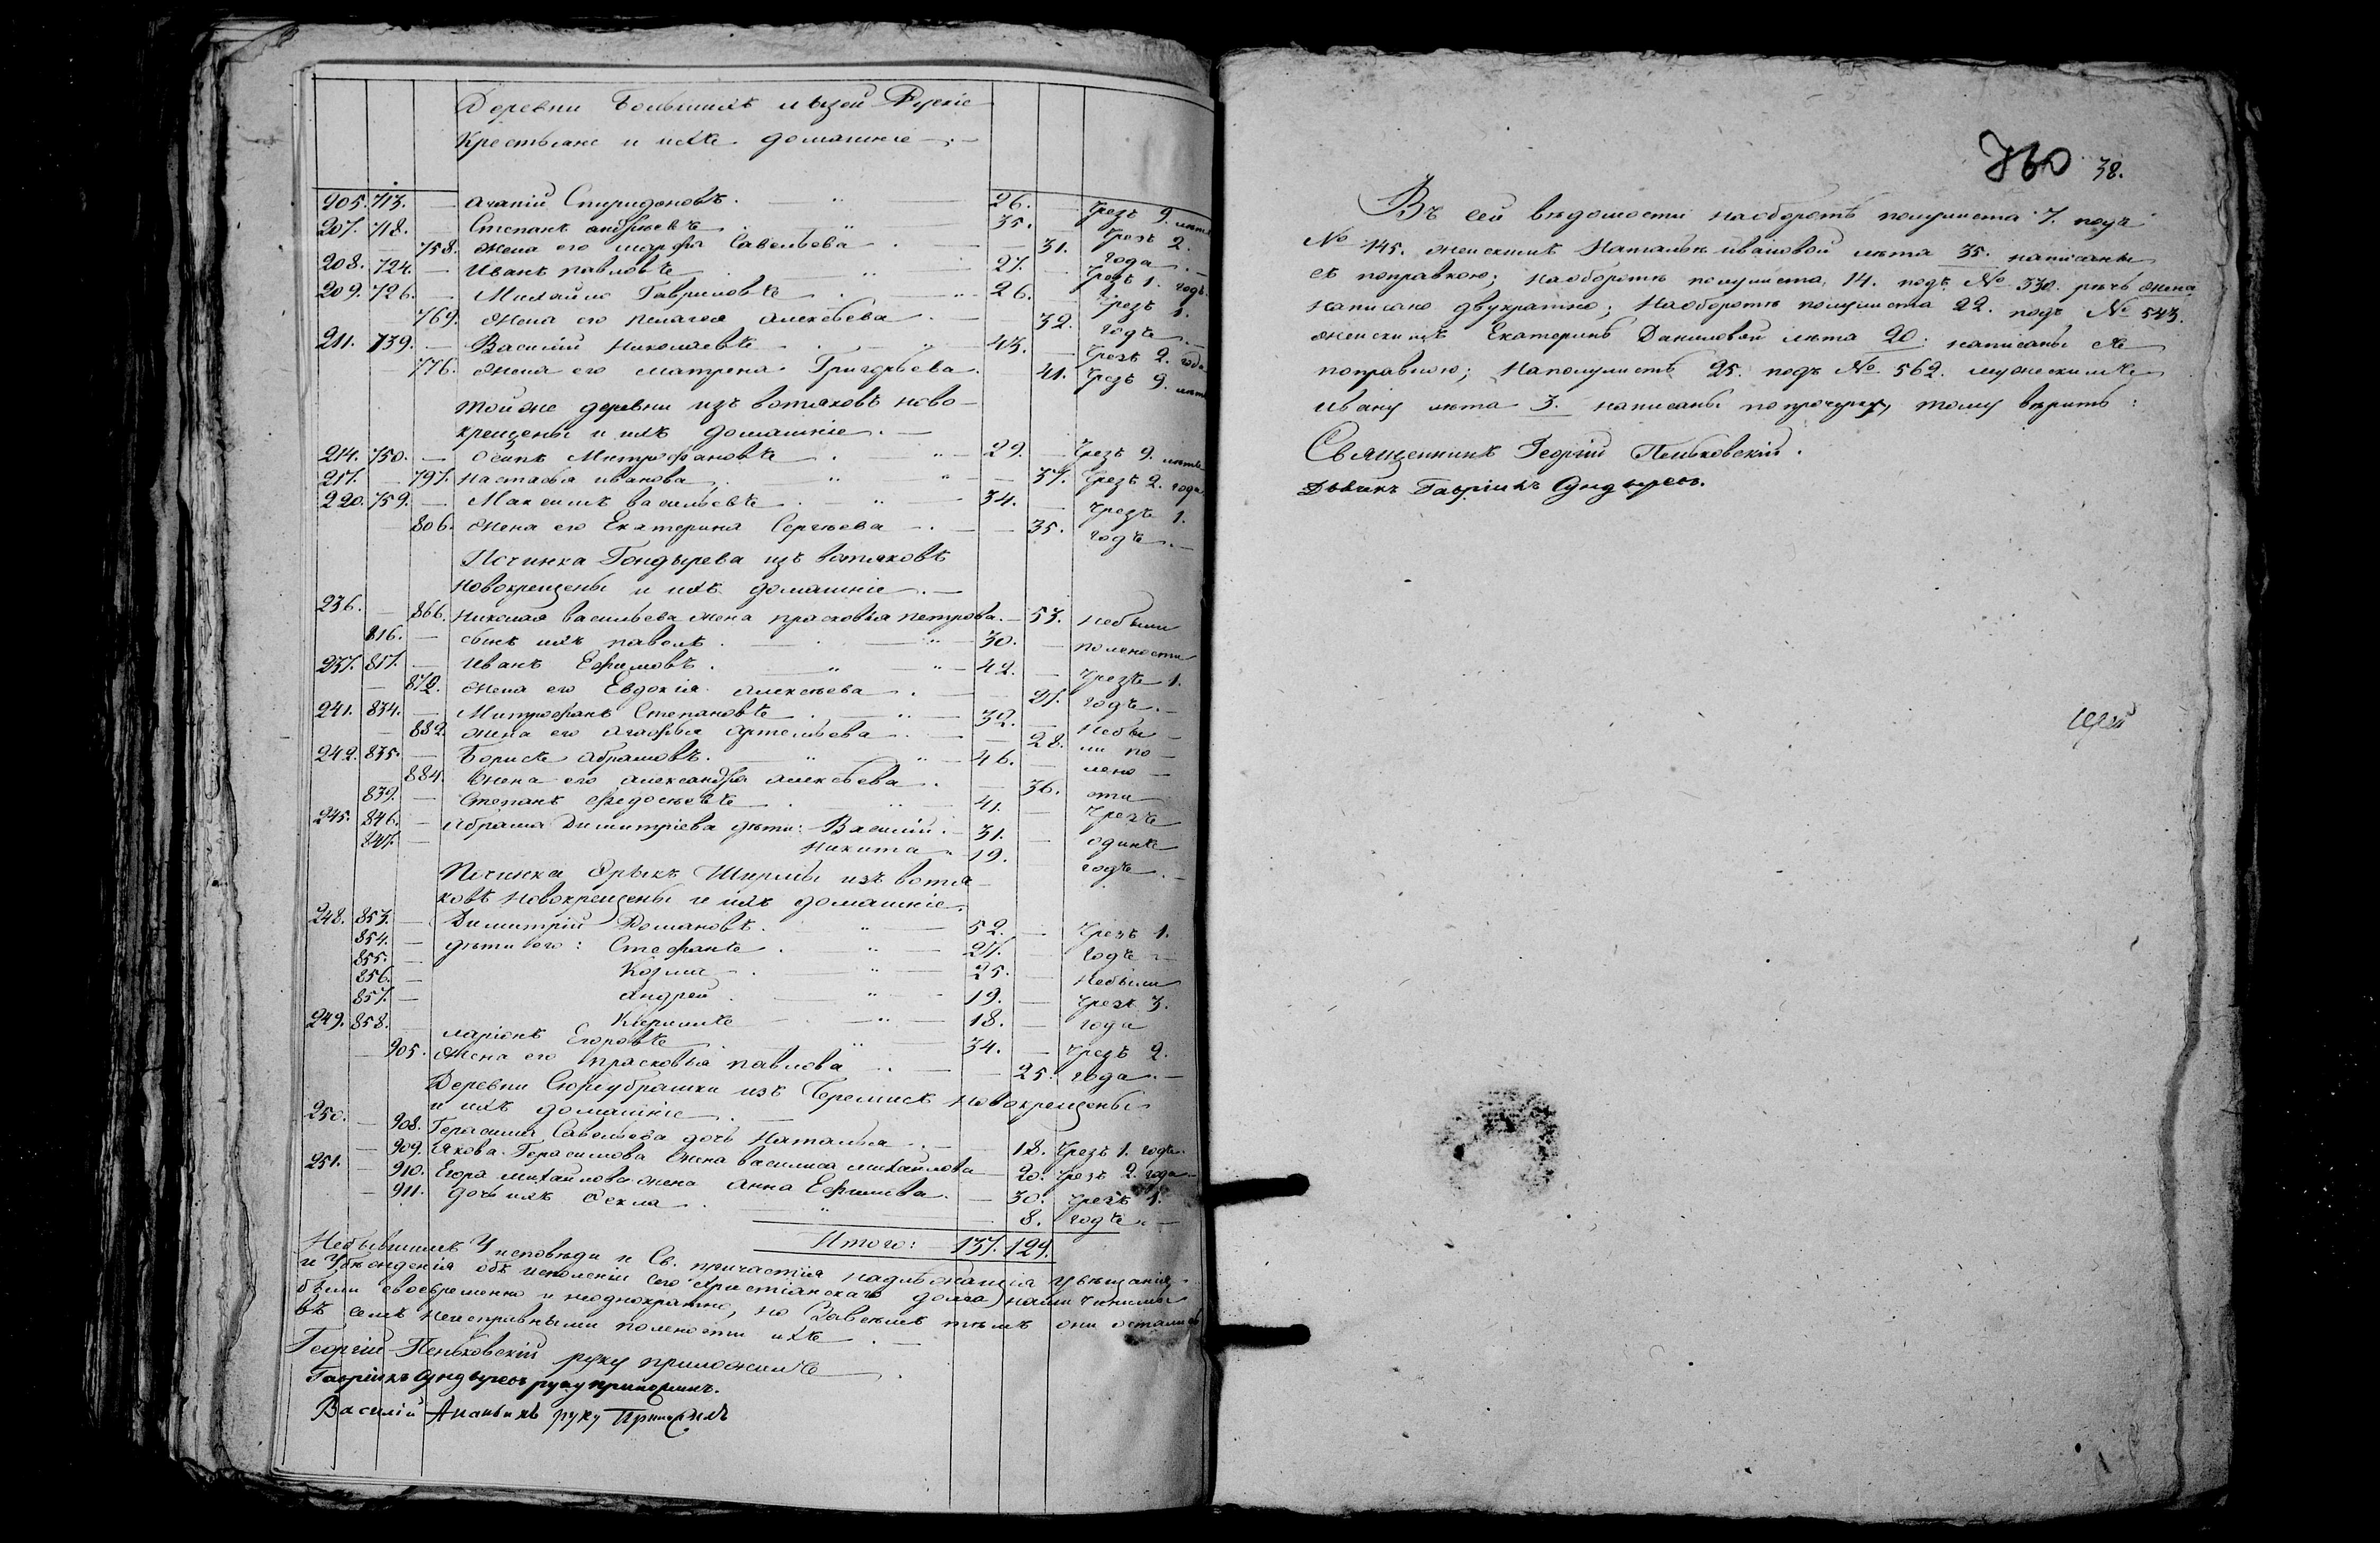 Деревни Большихъ Рускіе
Крестьяне и ихъ домашніе
205. 713. — Агапій Спиридоновъ. 26. Чрезъ 9. лѣтъ
207. 718. — Степанъ Андрѣевъ 35. Чрезъ 2.
— 758. Жена его Марфа Савельева — 31. года
208. 724. — Иванъ Павловъ 27. Чрезъ 1. годъ
209. 726. — Михайло Гавриловъ 26. Чрезъ 1.
769. Жена его Пелагея Алексѣева — 32. годъ
211. 739. — Василій Николаевъ 43. Чрезъ 2. года
— 776. Жена его Матрена Григорьева. — 41. Чрезъ 9. лѣтъ
Той же деревни изъ вотяковъ ново-
крещены и ихъ домашніе. —
214. 750. — Осипъ Митрофановъ 29. Чрезъ 9. лѣтъ
217. — 797. Настасья Иванова — 37. Чрезъ 2. года
220. 759. — Максимъ Васильевъ 34. — Чрезъ 1.
— 806. Жена его Екатерина Сергѣева — 35. годъ. —
Починка Гондырева изъ вотяковъ
новокрещены и ихъ домашніе. —
236. — 866. Николая Васильева жена Прасковья Петрова. — 53. Небыли
816. — сынъ ихъ Павелъ. 30. — полености
237. 817. — Иванъ Ефимовъ. 42. — Чрезъ 1.
— 872. Жена его Евдокія Алексѣева — 27. годъ. —
241. 834. — Митрофанъ Степановъ 32. — Небы-
— 882. Жена его Агафья Артемьева — 28. ли по-
242. 835. — Борисъ Абрамовъ. 46. — лено-
— 884. Жена его Александра Алексѣева — 36. сти
839. — Степанъ Федосѣевъ 41. Чрезъ
245. 846. — Абрама Димитріева дѣти: Василій. 31. — одинъ
847. — Никита 19. годъ. —
Починка Шурмы изъ вотя-
ковъ новокрещены и ихъ домашніе.
248. 853. — Димитрій Романовъ. 52. — Чрезъ 1.
854. — дѣти его: Стефанъ 27. — годъ —
855. — Козма 25. — Небыли
856. — Андрей 19. — Чрезъ 3.
857. — Кирилъ 18. — года
249. 858. — Ларіонъ Егоровъ 34. — Чрезъ 2.
— 905. Жена его Прасковья Павлова — 25. года. —
Деревни изъ Черемисъ новокрещены
и ихъ домашніе
250. — 908. Герасима Савельева дочь Наталья — 18. Чрезъ 1. годъ.
— 909. Якова Герасимова жена Василиса Михайлова 20. Чрезъ 2. года
251. — 910. Егора Михайлова жена Анна Ефимова. — 30. Чрезъ 1.
— 911. дочь ихъ Фекла — 8. годъ. —
Итого: 137. 129.
Небывшимъ У исповѣди и Св. причастія надлѣжащія увѣщанія
и Убѣжденія объ исполненіи сего Христіанскаго долга нами чинимы
были своевременно и неоднократно, но Завсемъ тѣмъ они остались
въ семъ неисправными полености ихъ
Георгій Пеньковскій руку приложилъ
Гавріилъ руку приложилъ.
Василій Ананьинъ руку Приложилъ
760 38.
Въ сей вѣдомости наоборотѣ полулиста 7. подъ
№ 145. женскимъ Натальѣ Ивановой лѣта 35. написаны
съ поправкою; наоборотѣ полулиста 14. подъ № 330. рѣчь жена
написано двукратно; наоборотѣ полулиста 22. подъ № 543.
женскимъ Екатеринѣ Даниловой лѣта 20. написаны съ
поправкою; Наполулистѣ 25. подъ № 562. мужескимъ
Ивану лѣта 3. написаны тому вѣрить:
Священникъ Георгій Пеньковскій.
Дьячекъ Гавріилъ